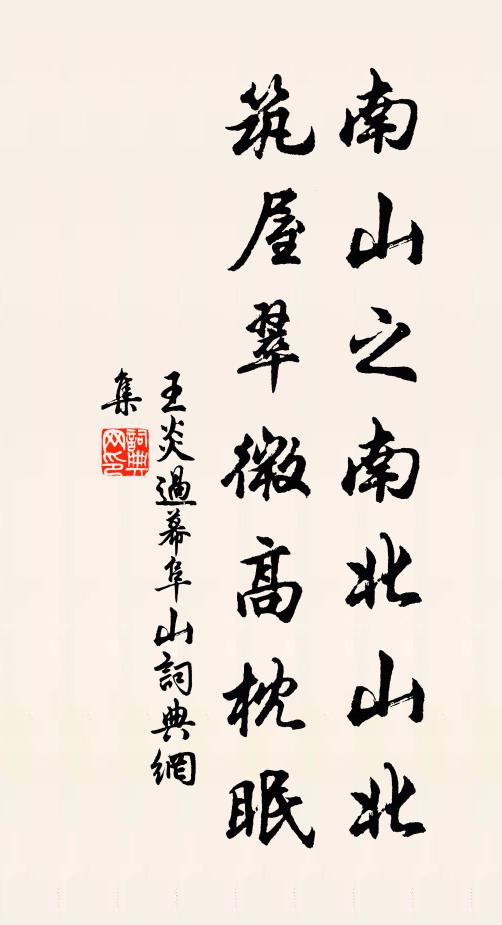 南山之南北山北
筑屋翠微高枕眠
王炎過幕阜山詞典網
集
詞典
网印